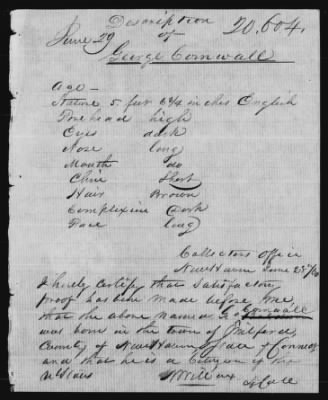 Description 20,604.
June 29 of
George Cornwall
Age —
Stature 5 feet 6 3/4 inches English
Forehead high
Eyes dark
Nose long
Mouth do
Chin Short
Hair Brown
Complexion Dark
Face long
Collectors Office
New Haven June 28
I hereby certify that Satisfactory
proof has been made before me
that the above named G Cornwall
was born in the town of Milford
County of New Haven State of Connec
and that he is a Citizen of the
U States
Coll